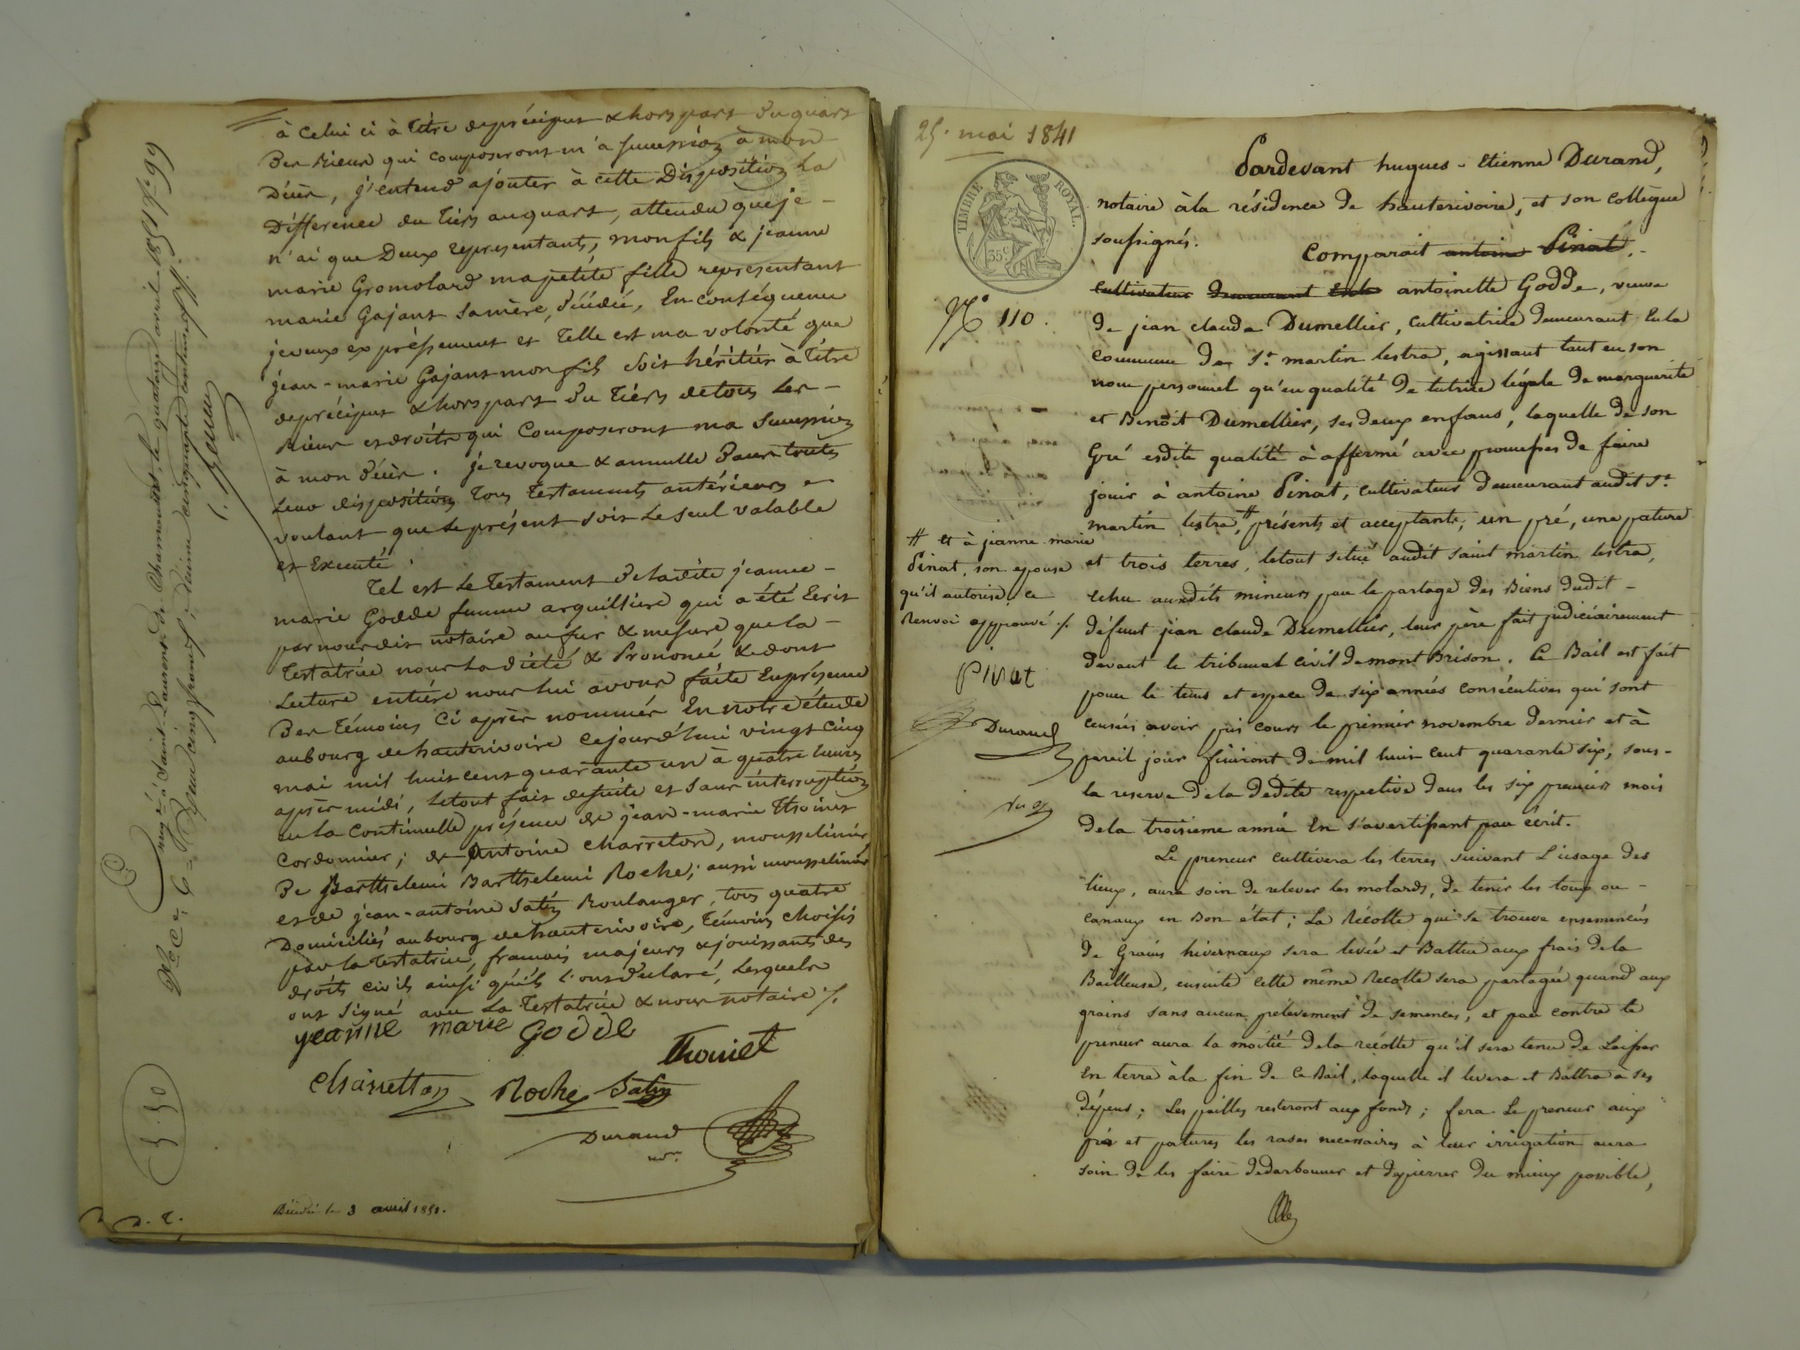 à celui ci à titre de préciput & hors part du quart
des biens qui composeront m'a succession à mon
Décès, j'entend ajouter à cette Disposition La
Différence du tiers au quart, attendu que je -
n'ai que Deux représentants, mon fils & jeanne
marie Gromolard ma petite fille représentant
marie Gajant sa mère, Décédée, En conséquence
je veux expréssement et telle est ma volonté que
jean-marie Gajant mon fils soit héritier à titre
de préciput & hors part du tiers de tous les -
biens et droits qui composeront ma succession
à mon décès. je revoque & annulle Dans toutes
Leur disposition tous testaments antérieurs
voulant que le présent soit le seul valable
et Exécuté.
Tel est le testament De ladite jeanne -
marie Godde femme arquilliere qui a été Ecrit
par nous dit notaire au fur & mesure que la -
testatrice nous la dicté & Prononcé & dont
Lecture entière nous lui avons faite En présence
Des témoins ci après nommés En notre étude
au bourg de hauterivoire ce jourd'hui vingt cinq
mai mil huit cent quarante un à quatre heures
après midi, le tout fait de suite et sans interruption
en la continuelle présence de jean-marie Thoinet
Cordonnier; de Antoine Charreton, mousselinier
De Barthelemi Barthelemi Roche; aussi mousselinier
et de jean-antoine Satin Boulanger, tous quatre
Domiciliés au bourg de hauterivoire, témoins choisis
par la testatrice, francais majeurs & jouissants des
droits civils ainsi qu'ils l'ont déclaré, Lesquels
ont signé avec La testatrice & nous notaire ./.
jeanne marie Godde
Thoinet
Charretton Roche Satin
Durand
nore
Décédée le 3 avril 1851.
Enregé à Saint Laurent de Chamousset, le quatorze avril 1851 fo 99
Ro Co 6
Reçu cinq francs; décime cinquante centimes
5.50
D. E.
25. mai 1841
TIMBRE ROYAL
35c
No 110.
Pardevant hugues - Etienne Durand,
notaire à la résidence de hauterivoire, et son collègue
soussignés.
Comparait antoine Pinat.
Cultivateur demeurant En la antoinette Godde, veuve
de jean claude Dumellier, cultivatrice demeurant En la
commune de St martin lestra, agissant tant en son
nom personnel qu'en qualité de tutrice légale de marguerite
et Benoît Dumellier, ses deux enfans, laquelle de son
Gré esdite qualité à affermé avec promesse de faire
jouir à antoine Pinat, cultivateur demeurant audit St
martin lestra, # présents et acceptants, un pré, une pature
et trois terres, le tout situé audit saint martin lestra,
echu auxdits mineurs par le partage des Biens dudit -
défunt jean claude Dumellier, leur père fait judiciairement
devant le tribunal civil de mont Brison. Ce Bail est fait
pour le tems et espace de six années consécutives qui sont
censées avoir pris cours le premier novembre dernier et à
pareil jour finiront de mil huit cent quarante six, sous -
la reserve de la dédite respective dans les six premiers mois
de la troisieme année En s'avertissant par écrit.
Le preneur cultivera les terres suivant L'usage des
lieux, aura soin de relever les motards, de tenir les toux ou -
canaux en Bon état; La Récolte qui se trouve ensemencés
de Grains hivernaux sera levée et Battue aux frais de la
Bailleuse, ensuite cette même Récolte sera partagée quand aux
grains sans aucun prélèvement de semences, et par contre le
preneur aura la moitié de la récolte qu'il sera tenu de Laisser
En terre à la fin de ce Bail, laquelle il levera et Battra à ses
dépens; Les pailles resteront aux fonds; fera Le preneur aux
prés et patures les rases necessaires à leur irrigation aura
soin de les faire dedarbonner et depierrer du mieux possible,
# et à jeanne marie
Pinat, son epouse
qu'il autorise, ce
Renvoi approuvé ./.
Pinat
Durand